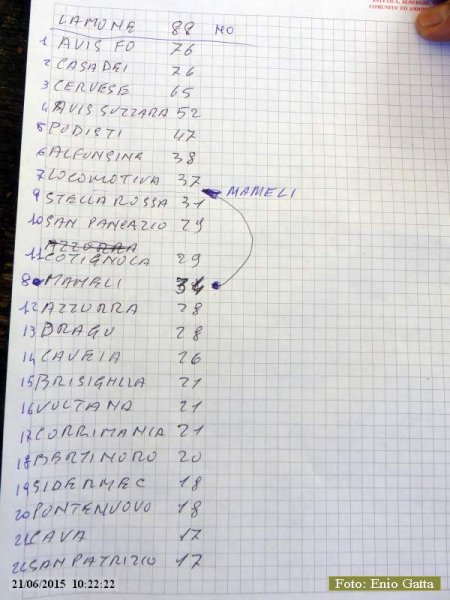 ESTETICA, ALBERGHI
COMUNITA' ED AMBI
LAMONE 88 NO
1 AVIS FO 76
2 CASADEI 76
3 CERVESE 65
4 AVIS SUZZARA 52
5 PODISTI 47
6 ALFONSINE 38
7 LOCOMOTIVA 37
MAMELI
9 STELLA ROSSA 31
10 SAN PANCAZIO 29
AZZORRA
11 COTIGNOLA 29
8 MAMELI 34
12 AZZURRA 28
13 DRAGO 28
14 CAVEIA 26
15 BRISIGHLLA 21
16 VOLTANA 21
17 CORRIMANIA 21
18 BERTINORO 20
19 SIDERMEC 18
20 PONTENUOVO 18
21 CAVA 17
22 SAN PATRIZIO 17
21/06/2015 10:22:22
Foto: Enio Gatta